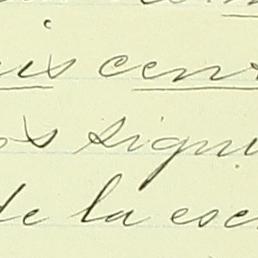 eis cent
os signi
de la esc